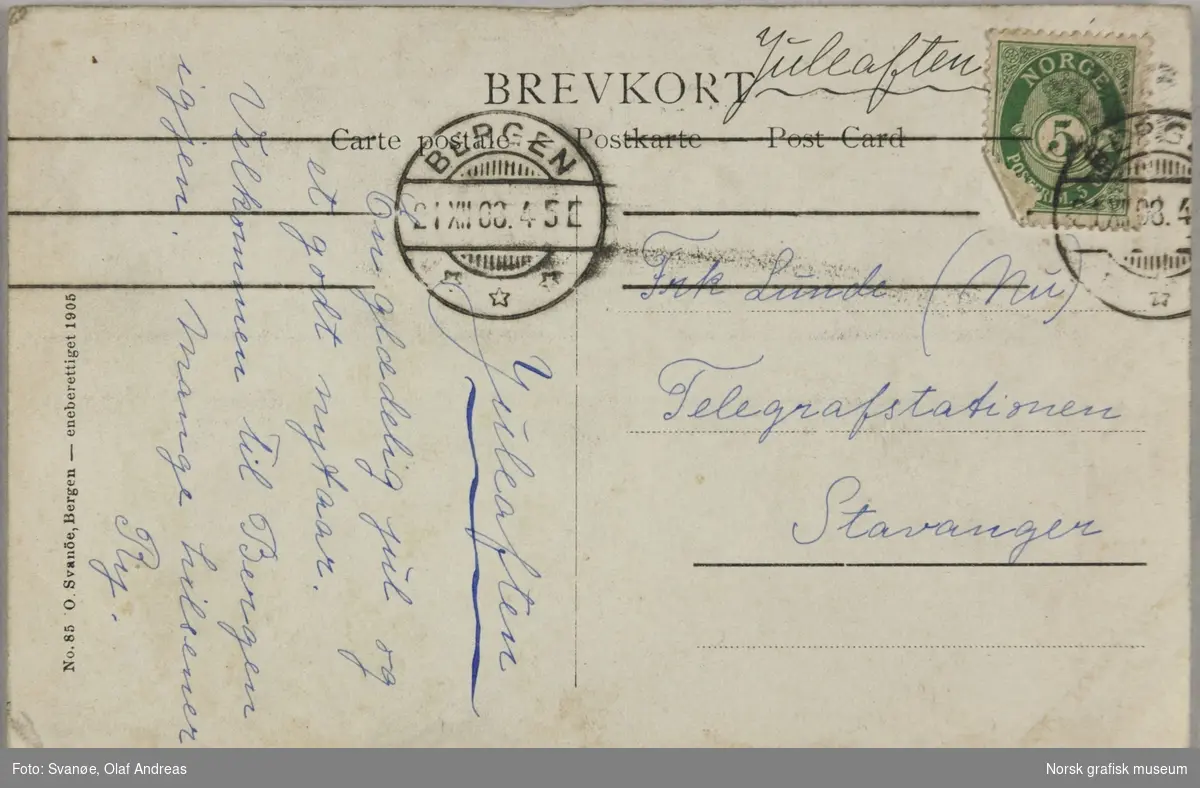 BREVKORT
Julleaften
Carte postale Postkarte Post Card
NORGE
5
BERGEN
21 XII 08. 4-5 E
Frk Lunde (Nu)
Telegrafstationen
Stavanger
Julleaften
En glædelig jul og
et godt nytaar.
Velkommen til Bergen
igjen. Mange hilsener
Ry.
No. 85 O. Svanöe, Bergen — eneberettiget 1905
Foto: Svanøe, Olaf Andreas
Norsk grafisk museum